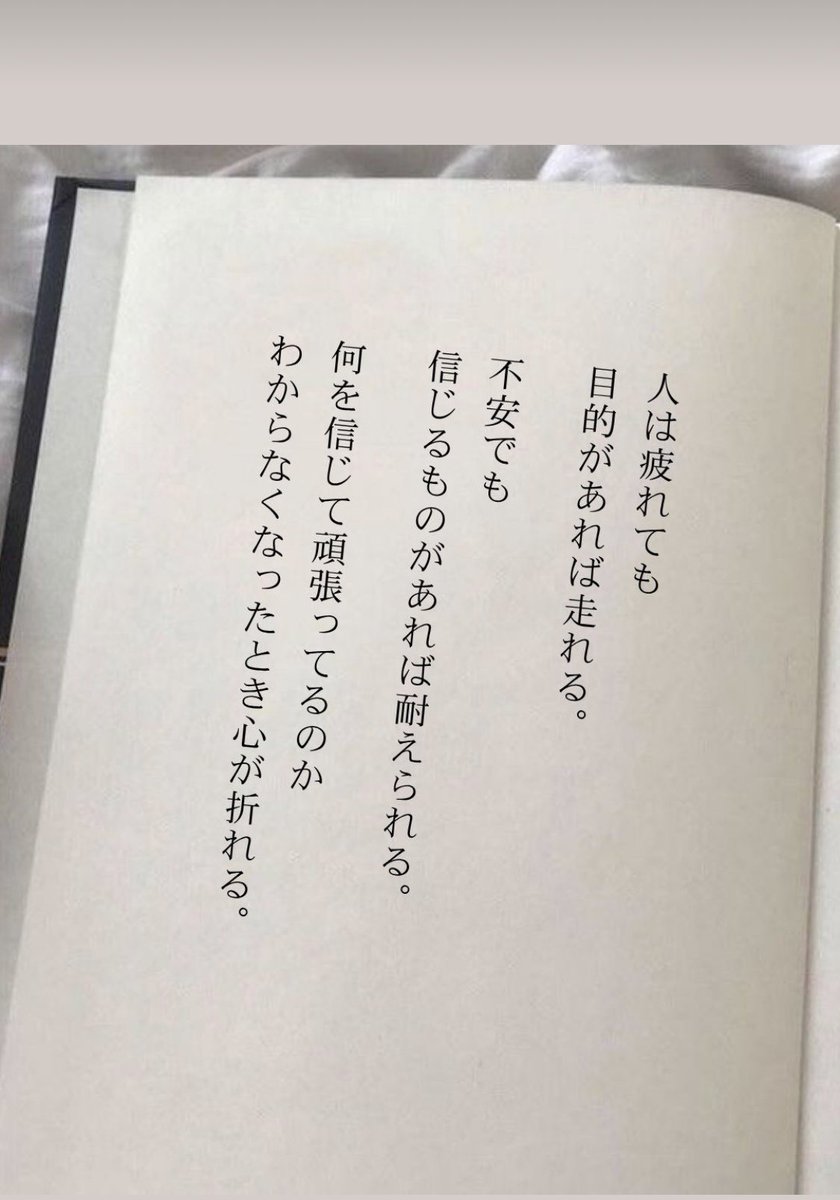 人は疲れても
目的があれば走れる。
不安でも
信じるものがあれば耐えられる。
何を信じて頑張ってるのか
わからなくなったとき心が折れる。